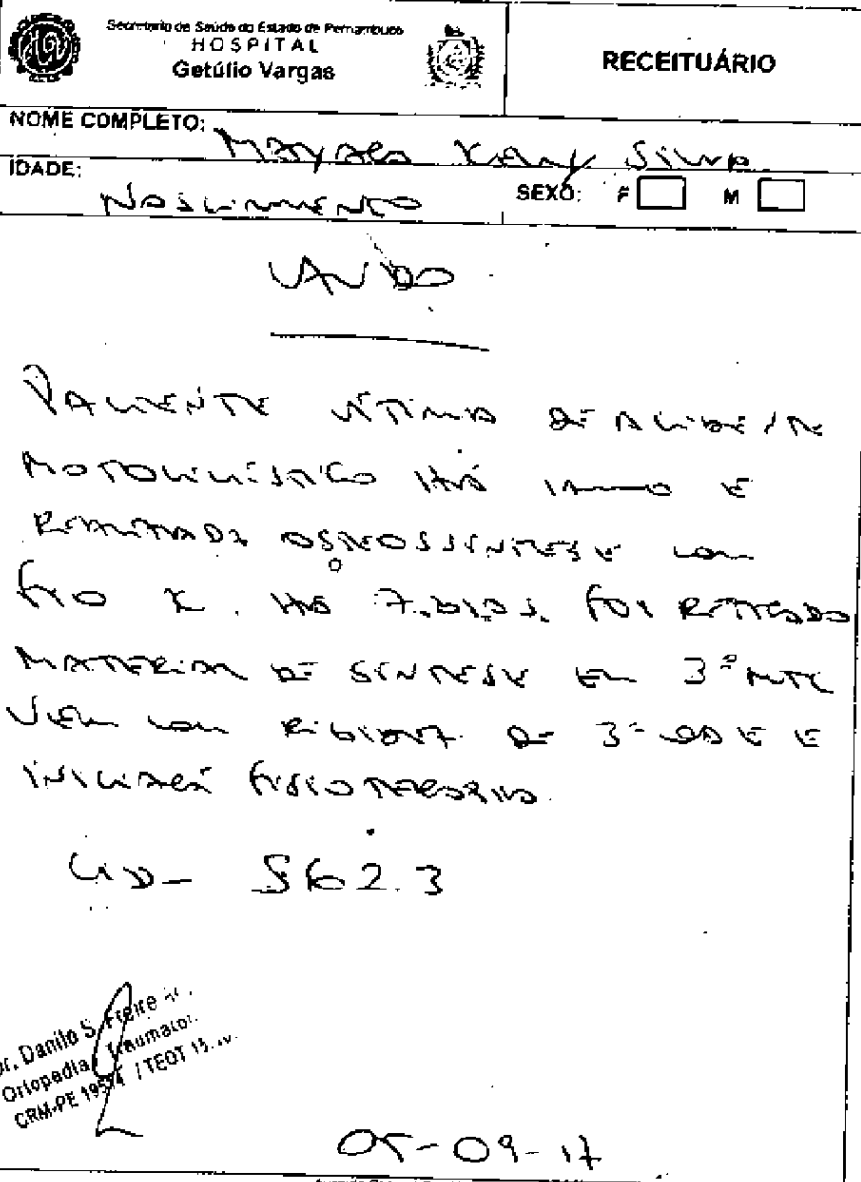 Secretaria de Saúde do Estado de Pernambuco
HOSPITAL
Getúlio Vargas
RECEITUÁRIO
NOME COMPLETO: Silva
IDADE: Nascimento SEXO: F M
LAUDO
PACIENTE VÍTIMA DE ACIDENTE
MOTOCICLÍSTICO HÁ 1 ANO E
REALIZADA OSTEOSSÍNTESE COM
FIO K. HÁ 7 DIAS. FOI RETIRADO
MATERIAL DE SÍNTESE EM 3º MTC
VEM COM RIGIDEZ DE 3º E
INICIARÁ FISIOTERAPIA.
CID - S62.3
Dr. Danilo S. Freire
Ortopedia
CRM-PE / TEOT
05-09-17